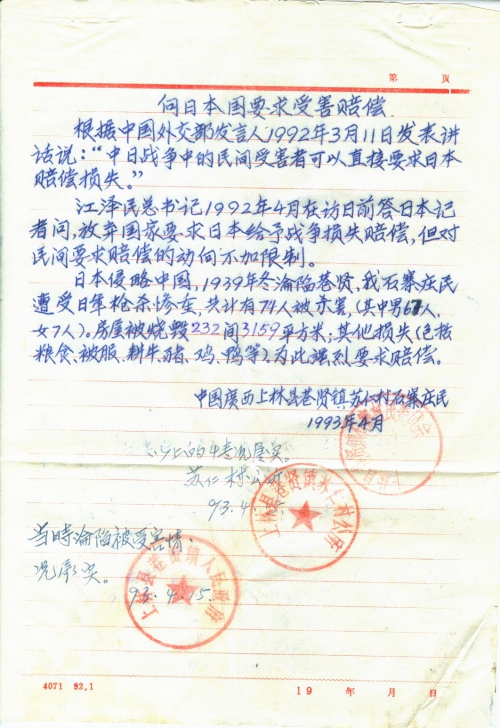 第 页
向日本国要求受害赔偿
根据中国外交部发言人1992年3月11日发表讲
话说：“中日战争中的民间受害者可以直接要求日本
赔偿损失。”
江泽民总书记1992年4月在访日前答日本记
者问，放弃国家要求日本给予战争损失赔偿，但对
民间要求赔偿的动向不加限制。
日本侵略中国，1939年冬沦陷巷贤，我石寨庄民
遭受日军枪杀惨重，共计有74人被杀害，(其中男67人、
女7人)。房屋被烧毁232间3159平方米；其他损失(包括
粮食、被服、耕牛、猪、鸡、鸭等)为此强烈要求赔偿。
中国广西上林县巷贤镇苏仁村石寨庄民
1993年4月
以上的情况属实。
苏仁村公所
93.4.15
上林县巷贤镇苏仁村公所
当时沦陷被受害情
况属实。
93.4.15.
上林县巷贤镇人民政府
4071 92.1
19 年 月 日